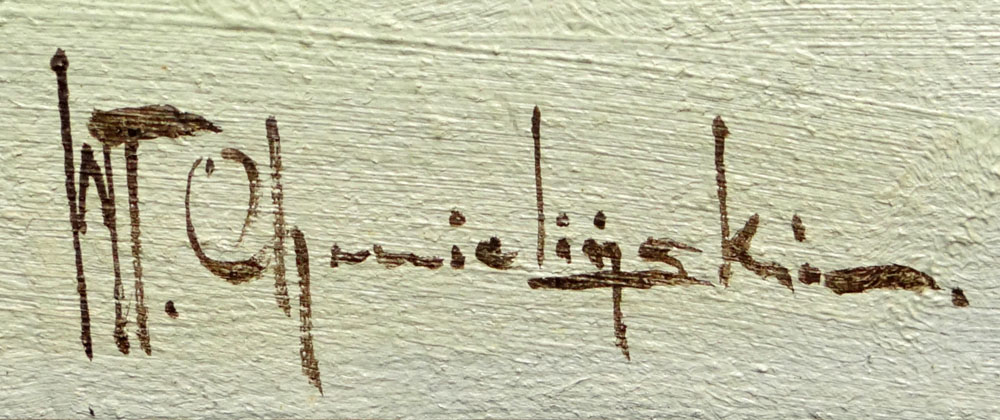 WT. Chmieliński.